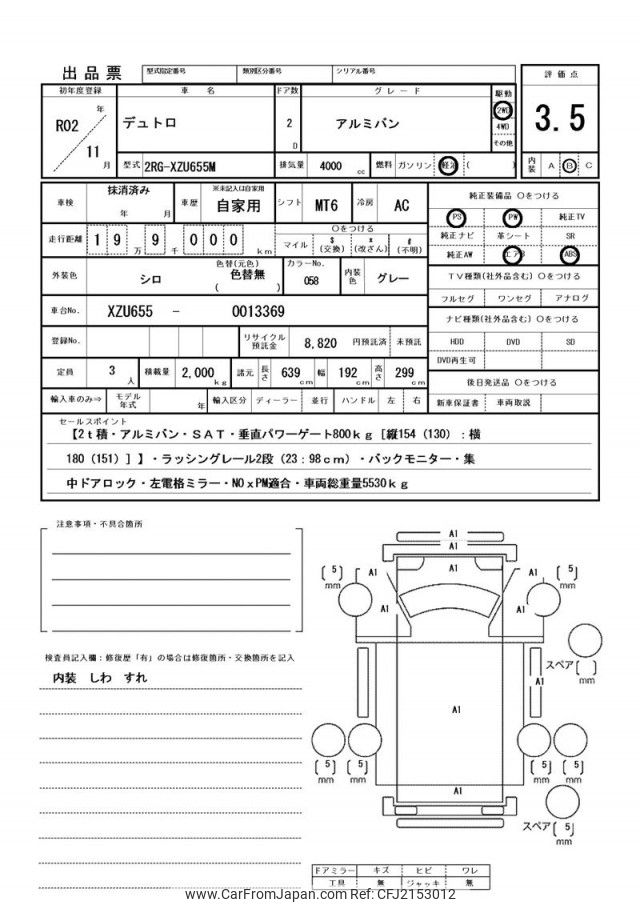 出品票 型式指定番号 類別区分番号 シリアル番号
初年度登録 車名 ドア数 グレード 駆動 評価点
R02 年 11 月 デュトロ 2 D アルミバン 2WD 4WD その他 3.5
型式 2RG-XZU655M 排気量 4000 cc 燃料 ガソリン 軽油 ( ) 内装 A B C
車検 抹消済み 年 月 車歴 ※未記入は自家用 自家用 シフト MT6 冷房 AC 純正装備品 〇をつける
PS PW 純正TV
走行距離 1 9 万 9 千 0 0 0 km 〇をつける マイル $ (交換) * (改ざん) # (不明) 純正ナビ 革シート SR
純正AW エアB ABS
外装色 シロ 色替(元色) 色替無 ( ) カラーNo. 058 内装色 グレー TV種類(社外品含む) 〇をつける
フルセグ ワンセグ アナログ
車台No. XZU655 - 0013369 ナビ種類(社外品含む) 〇をつける
登録No. リサイクル預託金 8,820 円預託済 未預託 HDD DVD SD
DVD再生可
定員 3 人 積載量 2,000 kg 諸元 長さ 639 cm 幅 192 cm 高さ 299 cm 後日発送品 〇をつける
輸入車のみ⇒ モデル年式 年 輸入区分 ディーラー 並行 ハンドル 左 右 新車保証書 車両取説
セールスポイント
【2t積・アルミバン・SAT・垂直パワーゲート800kg[縦154(130):横
180(151)]】・ラッシングレール2段(23:98cm)・バックモニター・集
中ドアロック・左電格ミラー・NOxPM適合・車両総重量5530kg
注意事項・不具合箇所
検査員記入欄:修復歴「有」の場合は修復箇所・交換箇所を記入
内装 しわ すれ
A1
A1
A1
[5] mm A1 A1 [5] mm
A1 A1
スペア[ ] mm
A1 A1
[5] mm [5] mm [5] mm [5] mm
A1
スペア[5] mm
ドアミラー キズ ヒビ ワレ
工具 無 ジャッキ 無
www.CarFromJapan.com Ref No: CFJ2153012